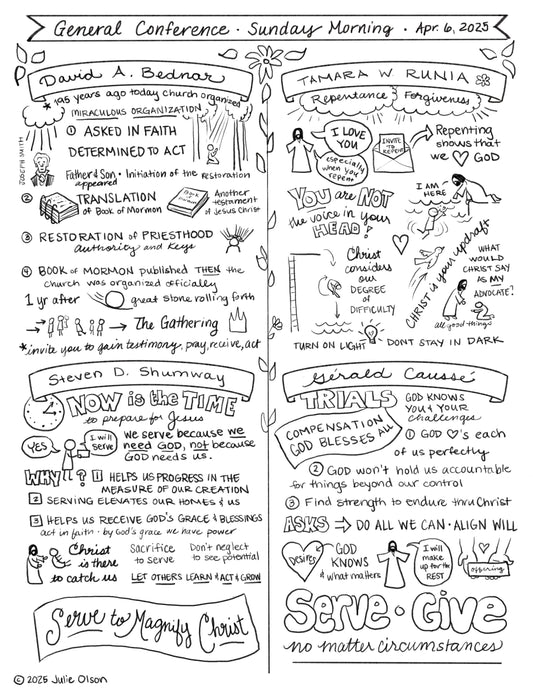 General Conference · Sunday Morning · Apr. 6, 2025
David A. Bednar
* 195 years ago today church organized
MIRACULOUS ORGANIZATION
① ASKED IN FAITH
DETERMINED TO ACT
JOSEPH SMITH
Father & Son · Initiation of the Restoration
appeared
② TRANSLATION
of Book of Mormon
Book of Mormon
Another
testament
of Jesus Christ
③ RESTORATION of PRIESTHOOD
Authority and Keys
④ BOOK of MORMON published THEN the
church was organized officially
1 yr after
great stone rolling forth
The Gathering
*invite you to gain testimony, pray, receive, act
TAMARA W. RUNIA
Repentance & Forgiveness
I LOVE
YOU
especially
when you
repent
INVITE
TO
REPENT
Repenting
shows that
we ♡ GOD
YOU are NOT
the voice in your
HEAD!
I AM
HERE
Christ
considers
our
DEGREE
of
DIFFICULTY
CHRIST is your updraft
WHAT
WOULD
CHRIST SAY
AS MY
ADVOCATE?
all good things
TURN ON LIGHT
DON'T STAY IN DARK
Steven D. Shumway
NOW is the TIME
to prepare for Jesus
YES
I will
serve
we serve because we
need GOD, not because
GOD needs us.
WHY? 1 HELPS US PROGRESS IN THE
MEASURE OF OUR CREATION
2 SERVING ELEVATES OUR HOMES & US
3 HELPS US RECEIVE GOD'S GRACE & BLESSINGS
act in faith · by God's grace we have power
Christ
is there
to catch us
Sacrifice
to serve
Don't neglect
to see potential
LET OTHERS LEARN & ACT & GROW
Serve to Magnify Christ
Gérald Caussé
TRIALS
GOD KNOWS
YOU & YOUR
challenges
COMPENSATION
GOD BLESSES ALL
① GOD ♡'s each
of us perfectly
② GOD won't hold us accountable
for things beyond our control
③ Find strength to endure thru Christ
ASKS ⇒ DO ALL WE CAN · ALIGN WILL
Desires
GOD
KNOWS
& what matters
I will
make
up for the
REST
offering
Serve · Give
no matter circumstances
© 2025 Julie Olson